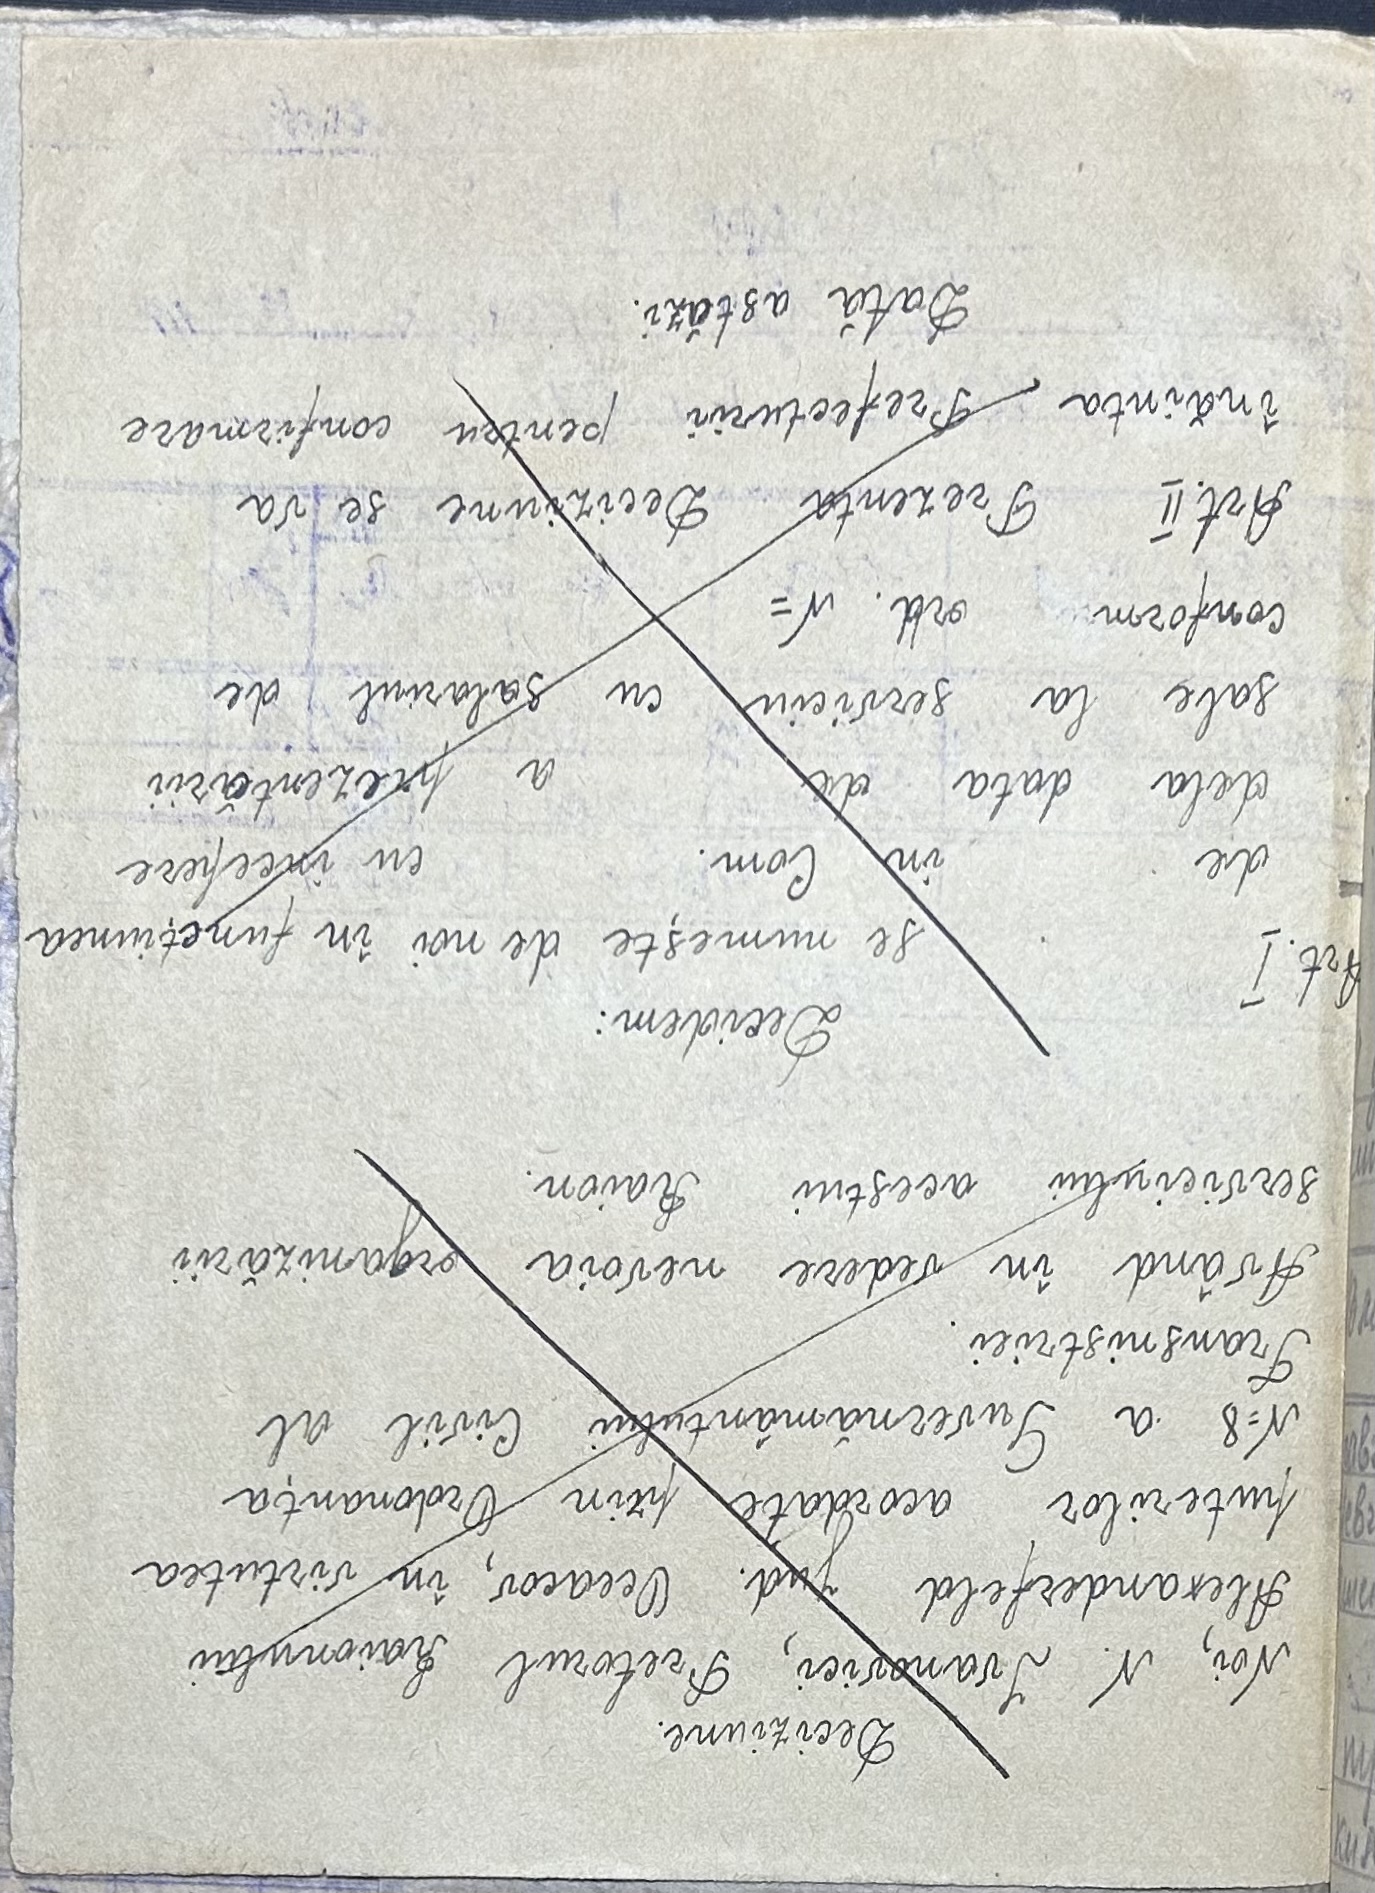 Deciziune.
Noi, N. Ivanovici, Pretorul Raionului
Alexanderfeld jud. Oceacov, în virtutea
puterilor acordate prin Ordonanța
N=8 a Guvernământului Civil al
Transnistriei.
Având în vedere nevoia organizării
serviciului acestui Raion.
Decidem:
Art. I se numește de noi în funcțiunea
de in Com. cu incepere
dela data de a prezentării
sale la serviciu cu salariul de
conform ord. N=
Art. II Prezenta Deciziune se va
înainta Prefecturii pentru confirmare
Dată astăzi.